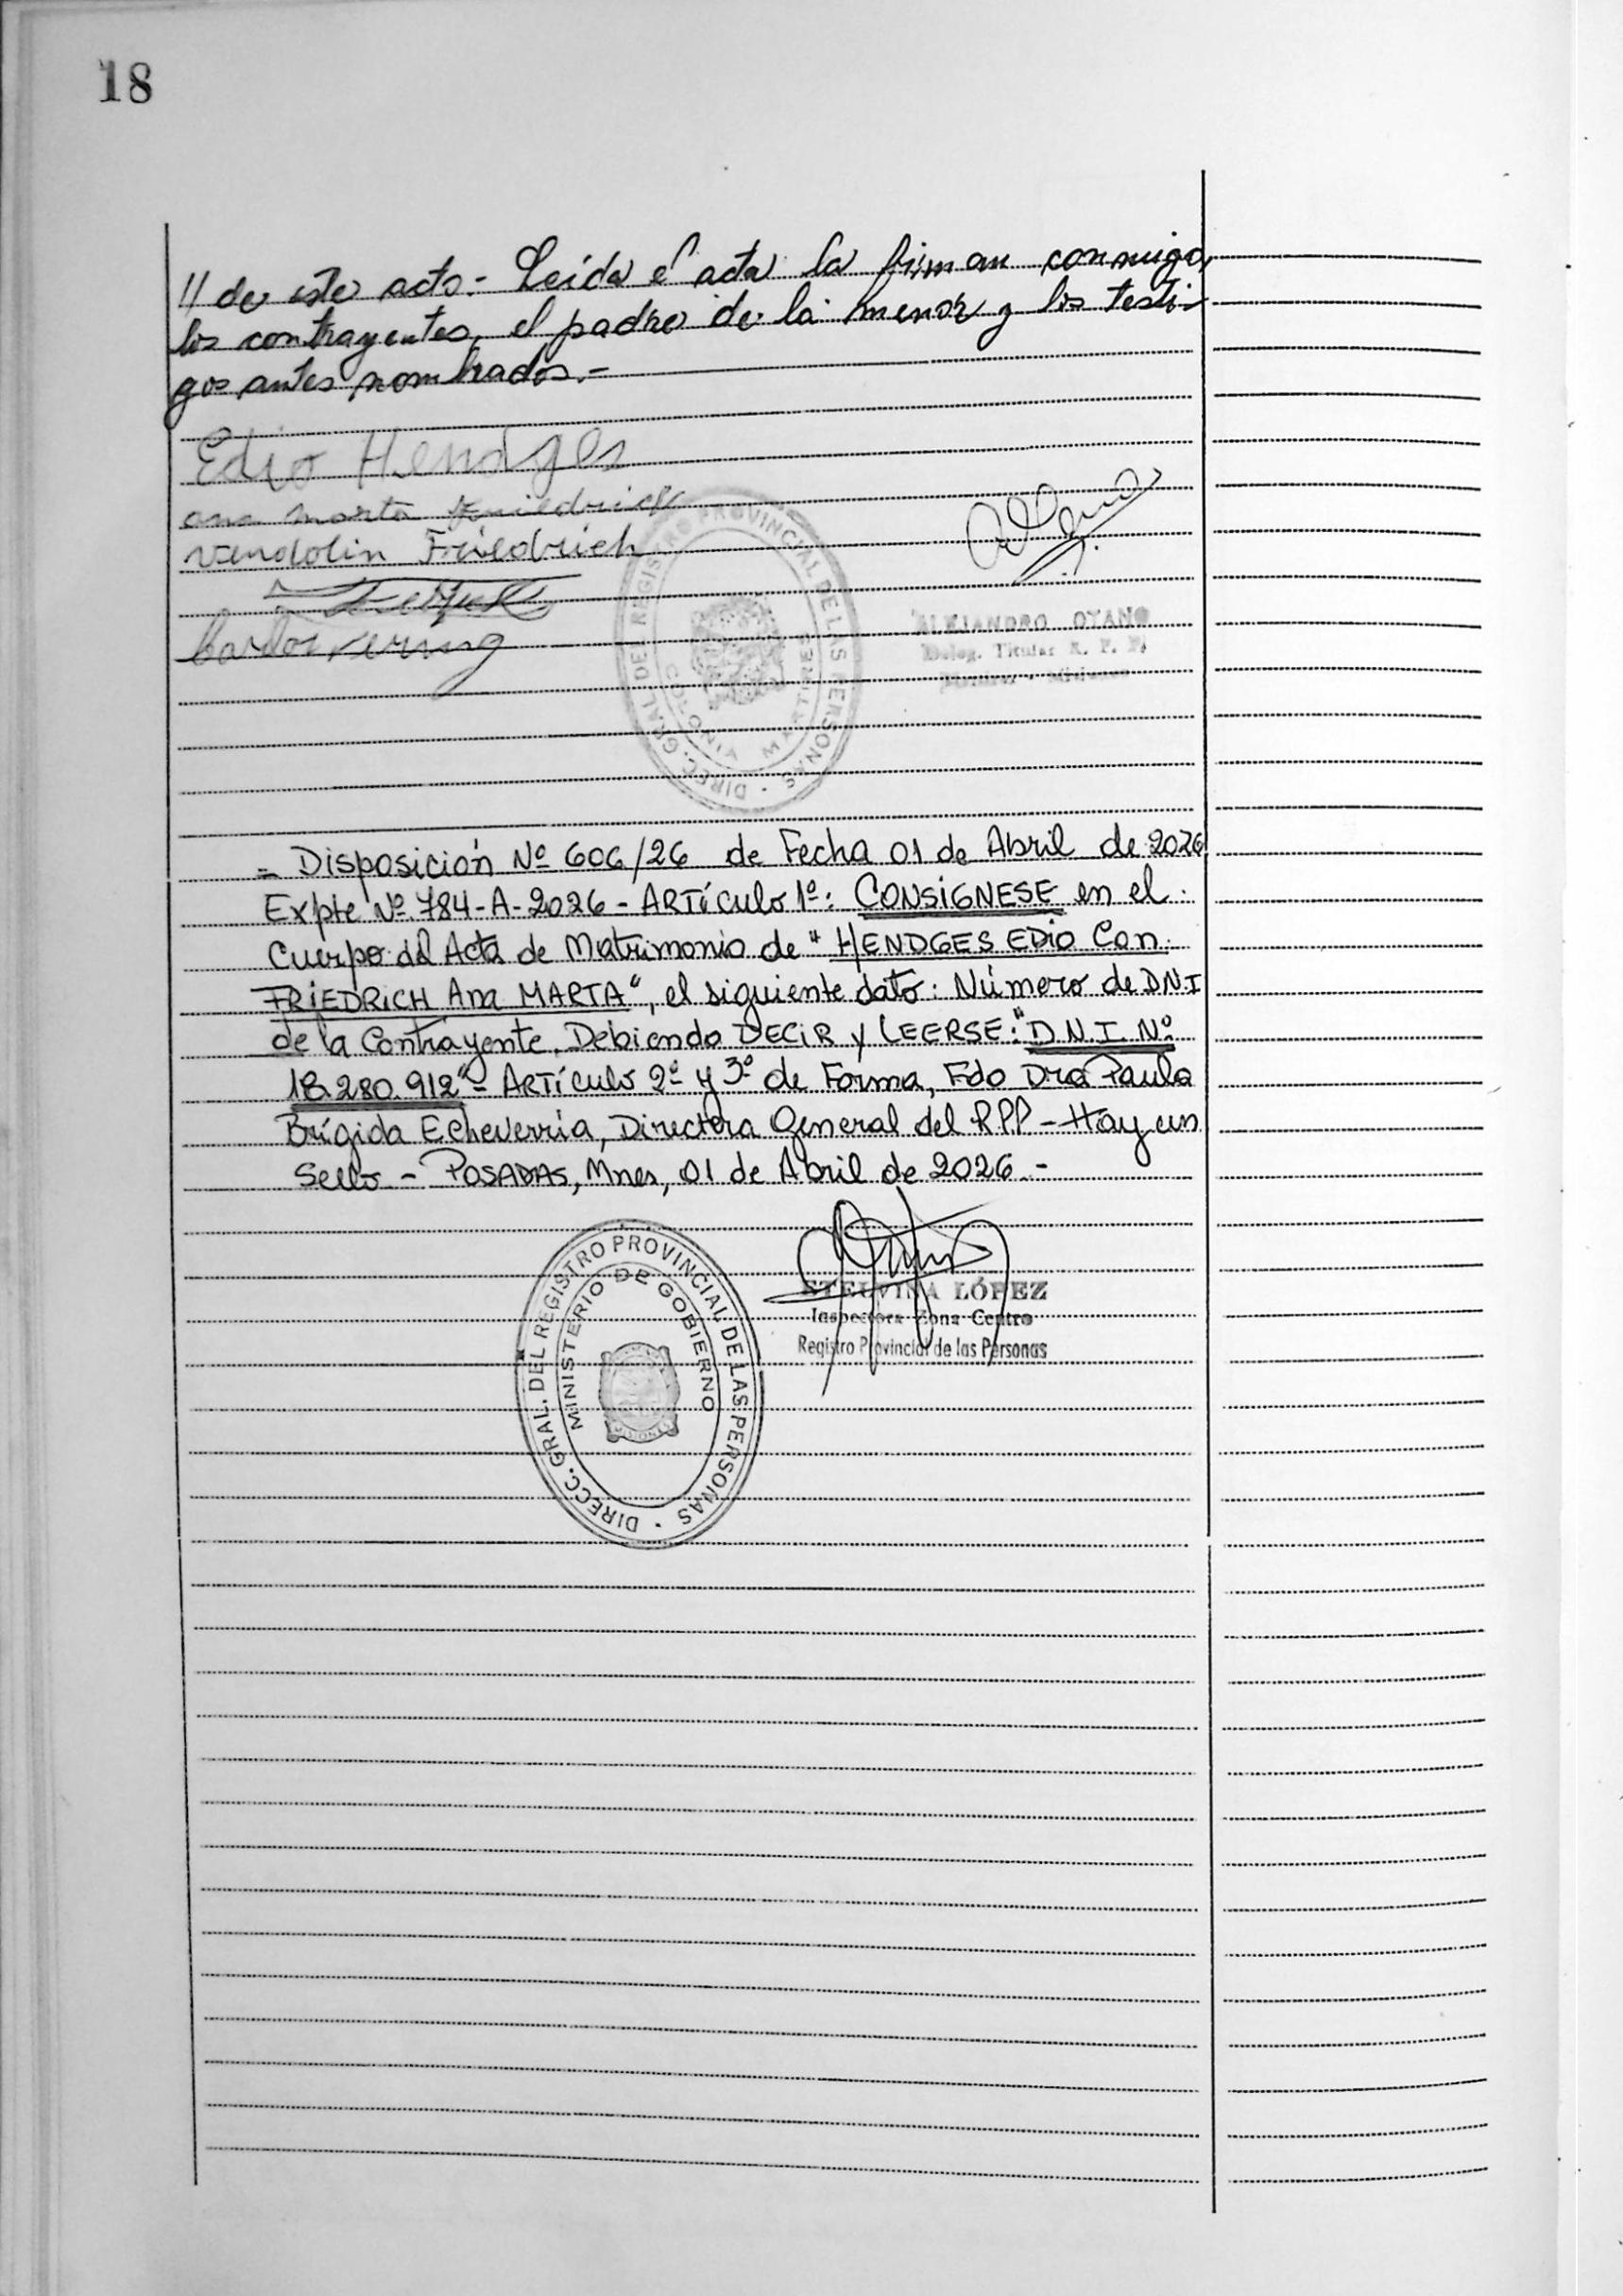 18
// de este acto.- Leída el acta la firman conmigo,
los contrayentes, el padre de la menor y los testi-
gos antes nombrados.-
Edio Hendges
ana marta Friedrich
Vendolin Friedrich
Carlos
DIREC. GRAL. DEL REGISTRO PROVINCIAL DE LAS PERSONAS
COLONIA MARTIRES
ALEJANDRO OYANO
Deleg. Titular R. P. P.
Mártires - Misiones
- Disposición Nº 606/26 de Fecha 01 de Abril de 2026
Expte Nº 784-A-2026 - ARTÍCULO 1º: CONSÍGNESE en el
Cuerpo del Acta de Matrimonio de "HENDGES EDIO Con
FRIEDRICH Ana MARTA", el siguiente dato: Número de DNI
de la Contrayente. Debiendo DECIR y LEERSE: "D.N.I. Nº
18.280.912" - ARTÍCULO 2º y 3º de Forma, Fdo Dra Paula
Brígida Echeverría, Directora General del RPP - Hay un
Sello - POSADAS, Mnes, 01 de Abril de 2026.-
DIRECC. GRAL. DEL REGISTRO PROVINCIAL DE LAS PERSONAS
MINISTERIO DE GOBIERNO
MISIONES
ETELVINA LÓPEZ
Inspectora Zona Centro
Registro Provincial de las Personas